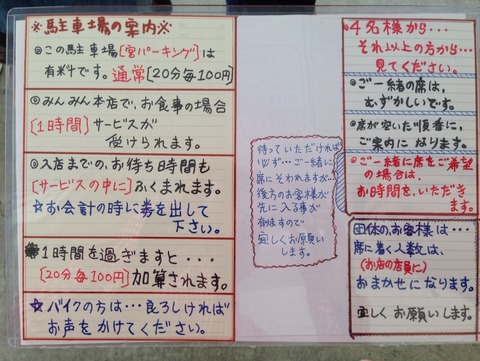 ※駐車場の案内※
◎この駐車場[宮パーキング]は
有料です。通常[20分毎100円]
◎みんみん本店で、お食事の場合
[1時間]サービスが
受けられます。
◎入店までの、お待ち時間も
[サービスの中に]ふくまれます。
☆お会計の時に券を出して
下さい。
◎1時間を過ぎますと・・・
[20分毎100円]加算されます。
☆バイクの方は…良ろしければ
お声をかけてください。
待っていただければ
必ず…ご一緒に
席にそわれますが…
後方のお客様が
先に入る事が
有ますので
宜しくお願い
します。
◎4名様から・・・
それ以上の方から…
見てください。
◎ご一緒の席は、
むずかしいです。
◎席が空いた順番に、
ご案内になります。
◎ご一緒に席をご希望
の場合は、
お時間を、いただき
ます。
団体のお客様は…
席に着く人数は、
(お店の店員に)
おまかせになります。
宜しくお願いします。